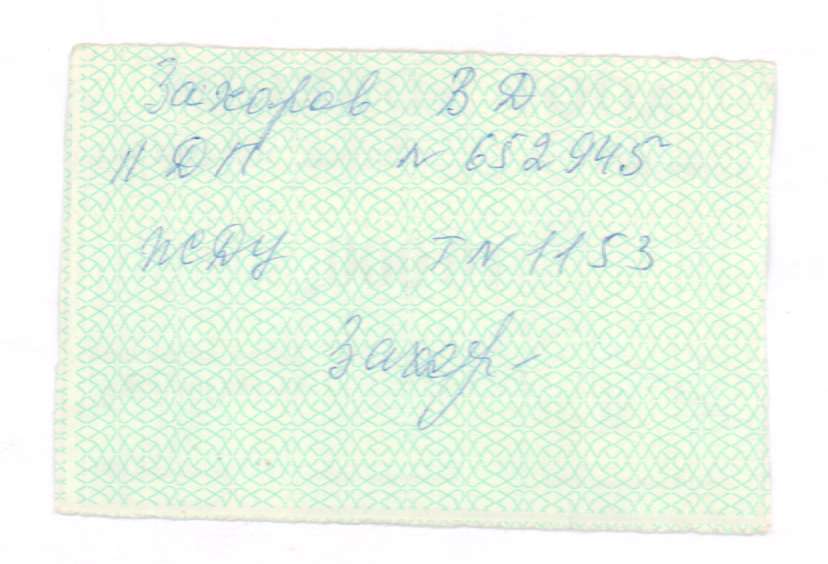 Захоров В Д
II ДП N 652945
ПСДУ TN 1153
Захор